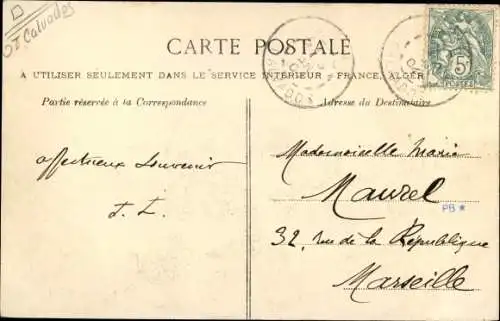 D
OI Calvados
CARTE POSTALE
A UTILISER SEULEMENT DANS LE SERVICE INTÉRIEUR (FRANCE, ALGÉR
Partie réservée à la Correspondance
Adresse du Destinataire
affectueux souvenir
Mademoiselle Maria
Maurel
PB *
32, rue de la République
Marseille
5c
POSTES